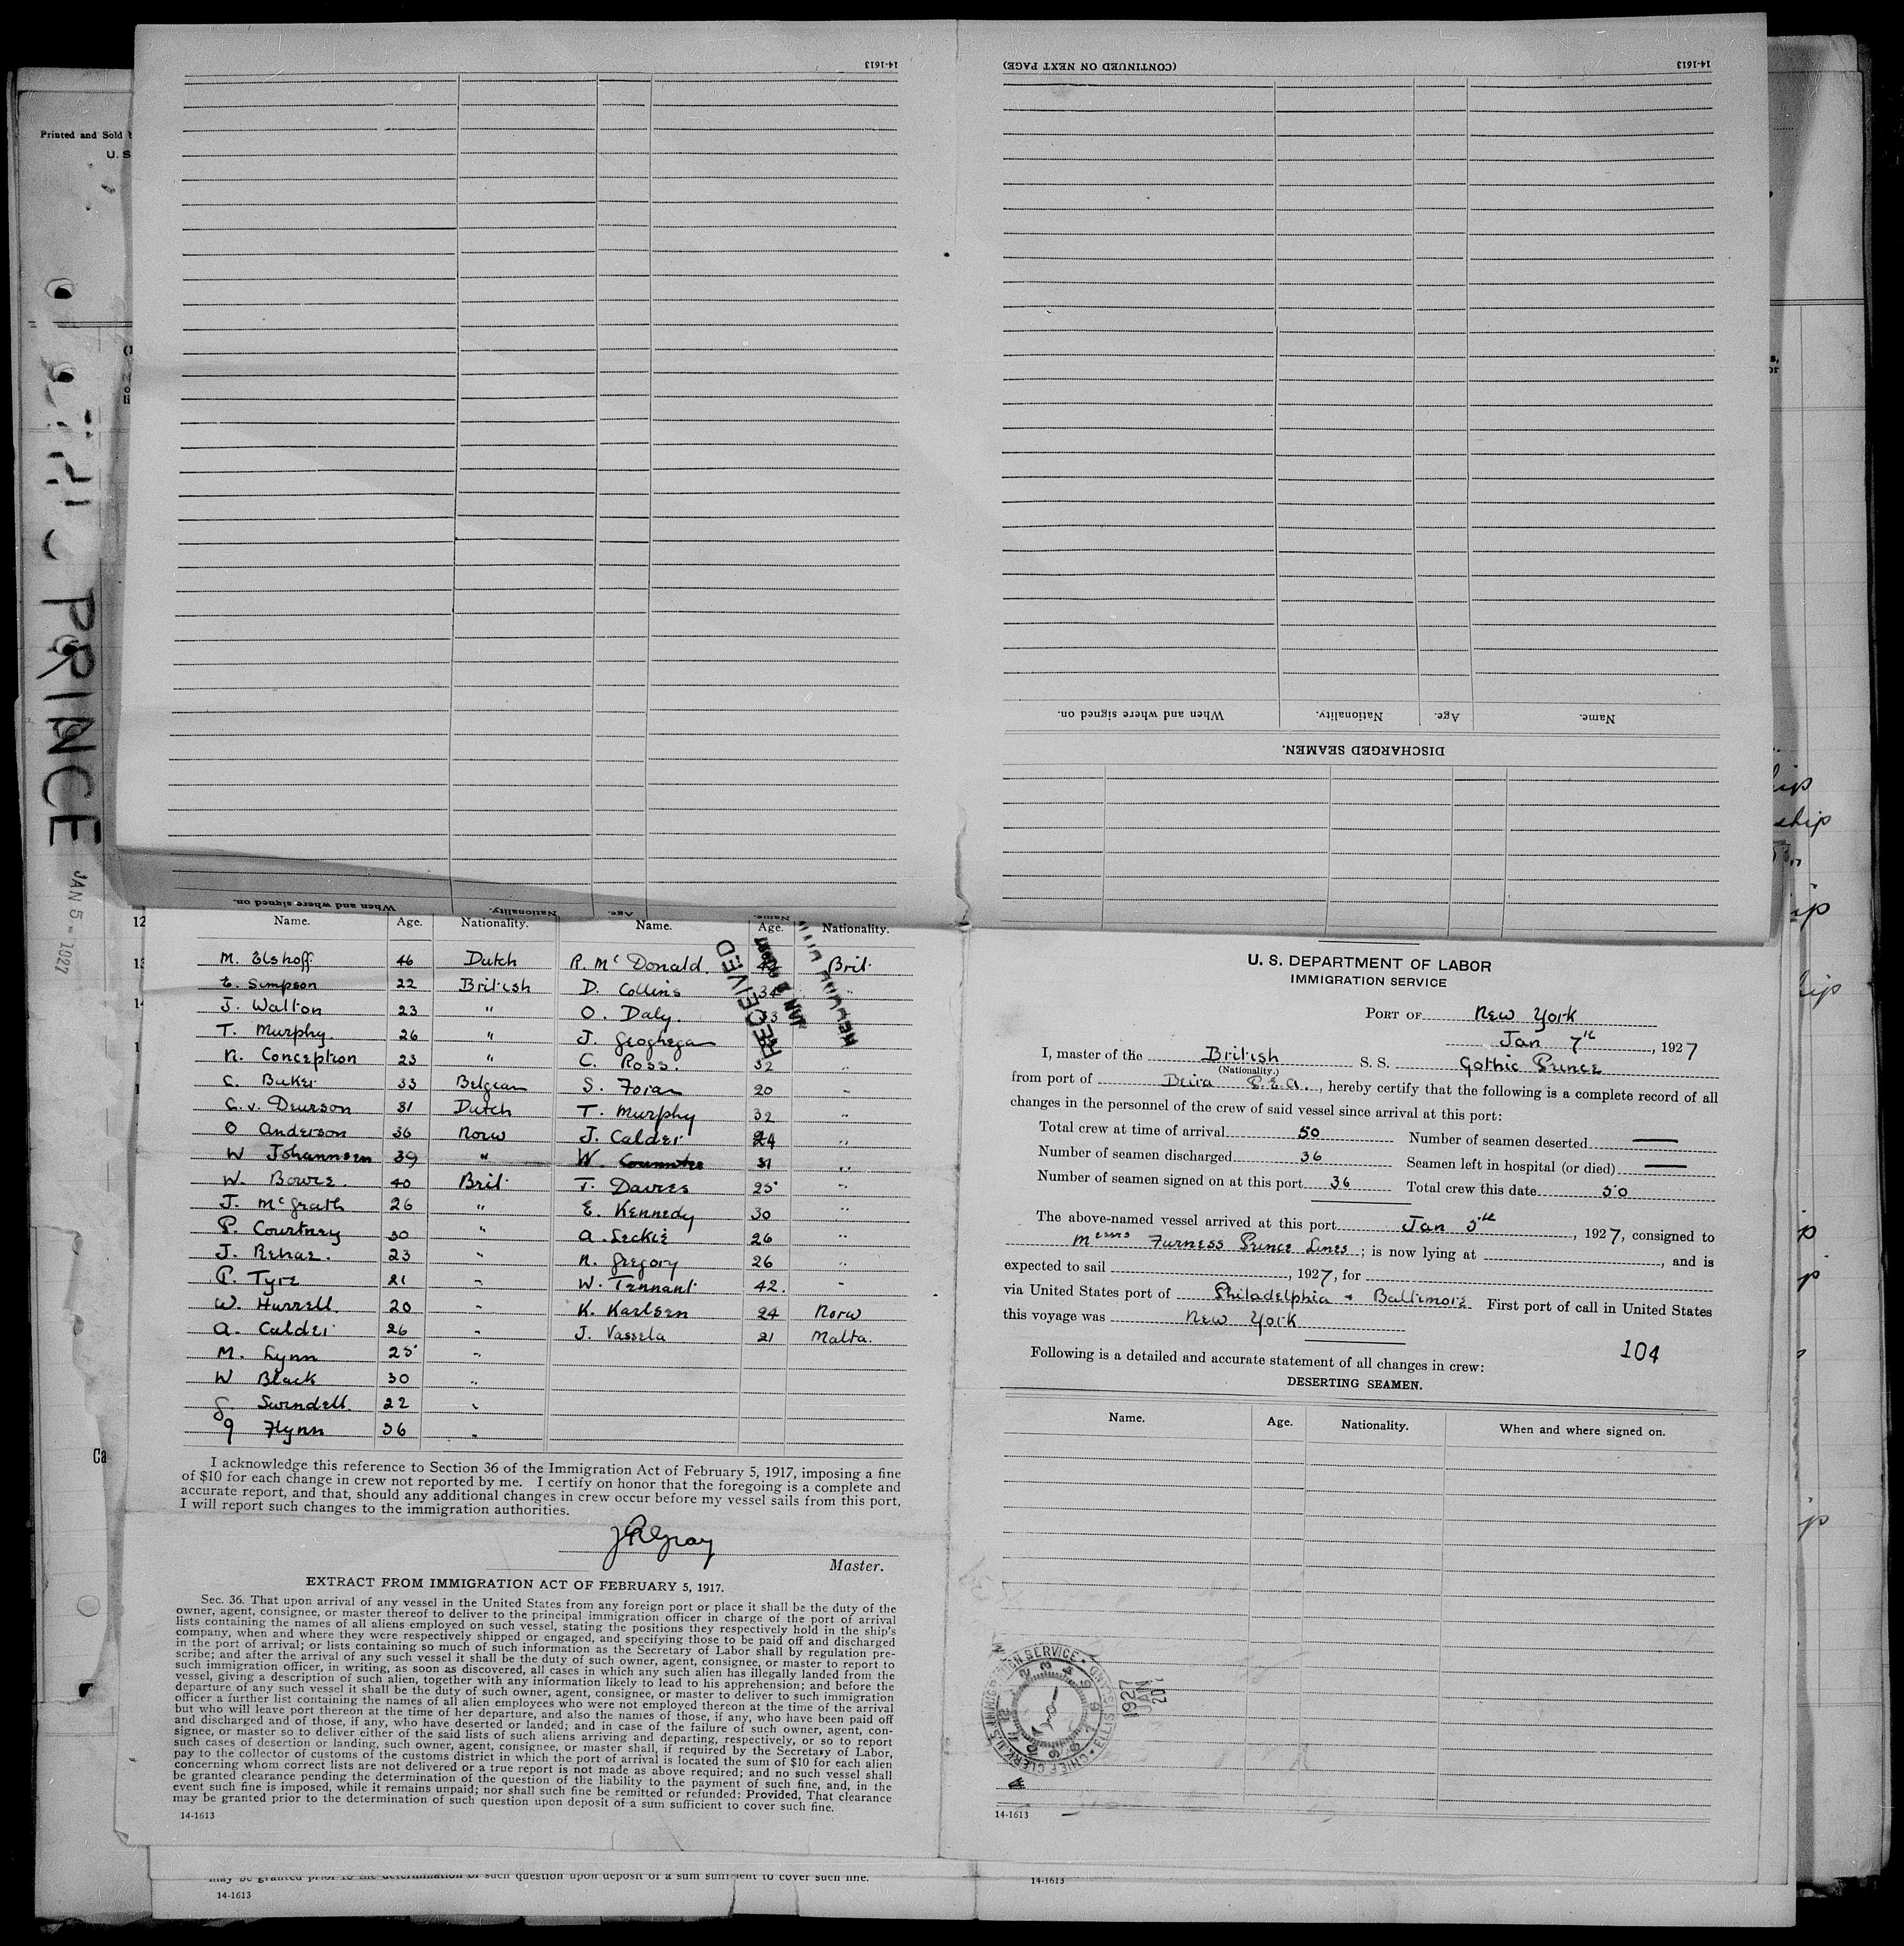 14-1613
(CONTINUED ON NEXT PAGE)
14-1613
Printed and Sold
U. S.
PRINCE
JAN 5 - 1927
When and where signed on.
Nationality.
Age.
Name.
DISCHARGED SEAMEN.
When and where signed on.
Nationality.
Age.
Name.
Name. Age. Nationality. Name. Age. Nationality.
M. Elshoff 46 Dutch R. McDonald. Bril.
E. Simpson 22 British D. Collins 34 "
J. Walton 23 " O. Daly.
T. Murphy 26 " J. Geoghegan
N. Conception 23 " C. Ross. 32 "
C. Buker 33 Belgean S. Foran 20 "
C. v. Deurson 31 Dutch T. Murphy 32 "
O Anderson 36 Norw J. Calder 24 "
W Johannsen 39 " W. 31 "
W. Bowre. 40 Bril. T. Davies 25 "
J. McGrath 26 " E. Kennedy 30 "
P. Courtney 30 " A. Leckie 26 "
J. Rehae. 23 " N. Gregory 26 "
P. Tyre 21 " W. Tennant 42. "
W. Hurrell. 20 " K. Karlsen 24 Norw
A. Calder 26 " J. Vassela 21 Malta.
M. Lynn 25 "
W Black 30 "
G. Swindell. 22 "
G Flynn 36 "
RECEIVED
JAN
I acknowledge this reference to Section 36 of the Immigration Act of February 5, 1917, imposing a fine
of $10 for each change in crew not reported by me. I certify on honor that the foregoing is a complete and
accurate report, and that, should any additional changes in crew occur before my vessel sails from this port,
I will report such changes to the immigration authorities.
JRGray
Master.
EXTRACT FROM IMMIGRATION ACT OF FEBRUARY 5, 1917.
Sec. 36. That upon arrival of any vessel in the United States from any foreign port or place it shall be the duty of the
owner, agent, consignee, or master thereof to deliver to the principal immigration officer in charge of the port of arrival
lists containing the names of all aliens employed on such vessel, stating the positions they respectively hold in the ship's
company, when and where they were respectively shipped or engaged, and specifying those to be paid off and discharged
in the port of arrival; or lists containing so much of such information as the Secretary of Labor shall by regulation pre-
scribe; and after the arrival of any such vessel it shall be the duty of such owner, agent, consignee, or master to report to
such immigration officer, in writing, as soon as discovered, all cases in which any such alien has illegally landed from the
vessel, giving a description of such alien, together with any information likely to lead to his apprehension; and before the
departure of any such vessel it shall be the duty of such owner, agent, consignee, or master to deliver to such immigration
officer a further list containing the names of all alien employees who were not employed thereon at the time of the arrival
but who will leave port thereon at the time of her departure, and also the names of those, if any, who have been paid off
and discharged and of those, if any, who have deserted or landed; and in case of the failure of such owner, agent, con-
signee, or master so to deliver either of the said lists of such aliens arriving and departing, respectively, or so to report
such cases of desertion or landing, such owner, agent, consignee, or master shall, if required by the Secretary of Labor,
pay to the collector of customs of the customs district in which the port of arrival is located the sum of $10 for each alien
concerning whom correct lists are not delivered or a true report is not made as above required; and no such vessel shall
be granted clearance pending the determination of the question of the liability to the payment of such fine, and, in the
event such fine is imposed, while it remains unpaid; nor shall such fine be remitted or refunded: Provided, That clearance
may be granted prior to the determination of such question upon deposit of a sum sufficient to cover such fine.
14-1613
U. S. DEPARTMENT OF LABOR
IMMIGRATION SERVICE
PORT OF New York
Jan 7th, 1927
I, master of the British S. S. Gothic Prince
(Nationality.)
from port of Beira P.E.A., hereby certify that the following is a complete record of all
changes in the personnel of the crew of said vessel since arrival at this port:
Total crew at time of arrival 50 Number of seamen deserted —
Number of seamen discharged 36 Seamen left in hospital (or died) —
Number of seamen signed on at this port 36 Total crew this date 50
The above-named vessel arrived at this port Jan 5th, 1927, consigned to
Messrs Furness Prince Lines; is now lying at , and is
expected to sail , 1927, for
via United States port of Philadelphia + Baltimore First port of call in United States
this voyage was New York
104
Following is a detailed and accurate statement of all changes in crew:
DESERTING SEAMEN.
Name. Age. Nationality. When and where signed on.
CHIEF CLERK, U.S. IMMIGRATION SERVICE • ELLIS ISLAND
1927
JAN
14-1613
may be granted prior to the determination of such question upon deposit of a sum sufficient to cover such fine.
14-1613
14-1613